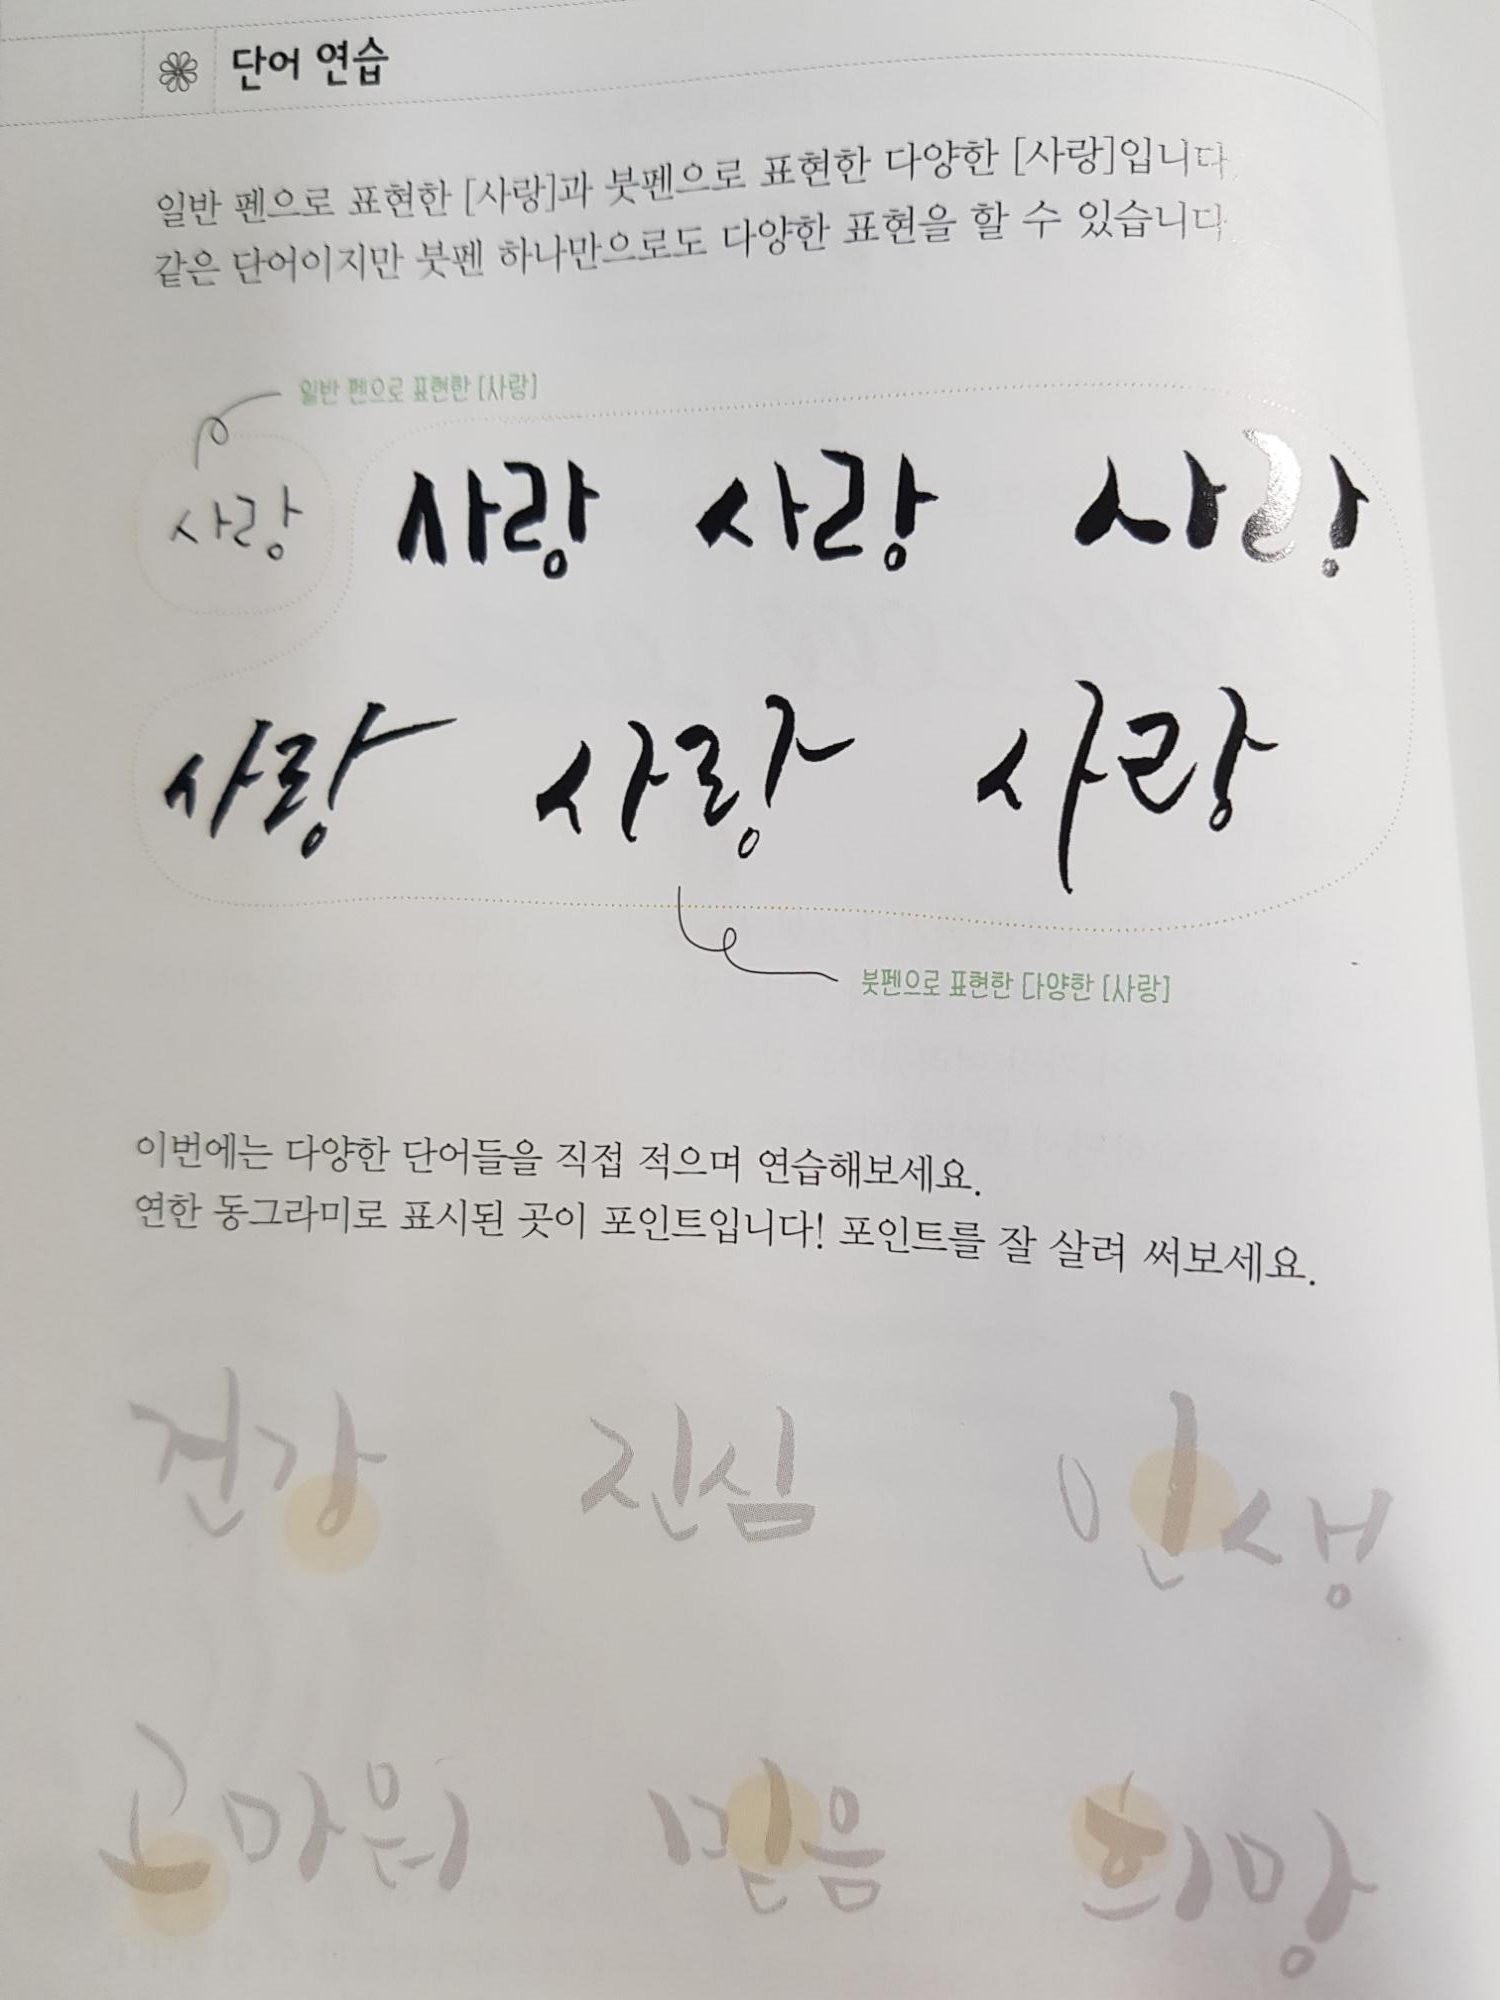 단어 연습
일반 펜으로 표현한 [사랑]과 붓펜으로 표현한 다양한 [사랑]입니다.
같은 단어이지만 붓펜 하나만으로도 다양한 표현을 할 수 있습니다.
일반 펜으로 표현한 [사랑]
사랑 사랑 사랑 사랑
사랑 사랑 사랑
붓펜으로 표현한 다양한 [사랑]
이번에는 다양한 단어들을 직접 적으며 연습해보세요.
연한 동그라미로 표시된 곳이 포인트입니다! 포인트를 잘 살려 써보세요.
건강 진심 인생
고마워 믿음 희망